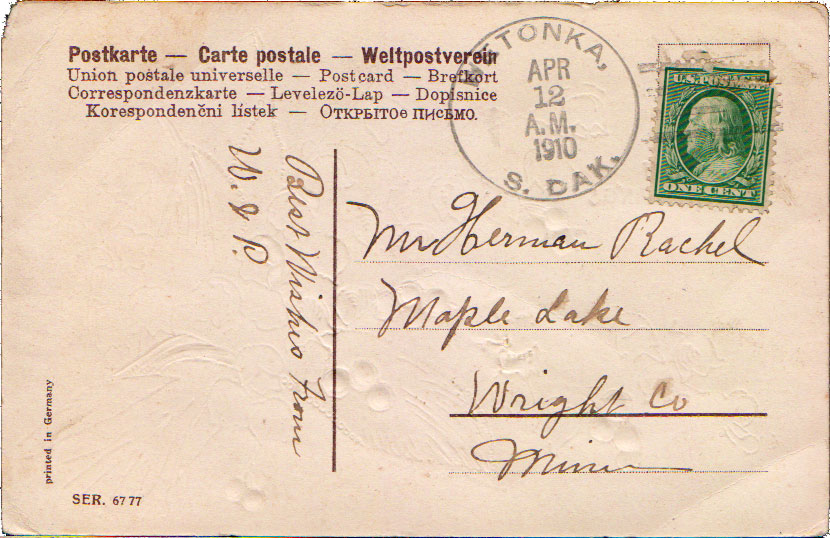 Postkarte — Carte postale — Weltpostverein
Union postale universelle — Postcard — Brefkort
Correspondenzkarte — Levelezö-Lap — Dopisnice
Korespondenčni lístek — Открытое письмо.
TONKA,
APR
12
A.M.
1910
S. DAK.
U.S. POSTAGE
ONE CENT
Best Wishes From
W. & P.
Mr Herman Rachel
Maple Lake
Wright Co
Minn
printed in Germany
SER. 6777